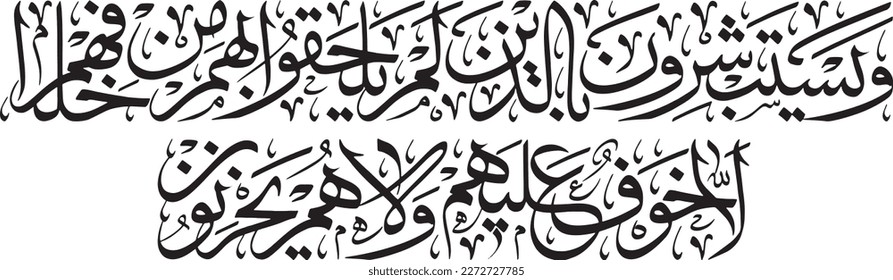 ويستبشرون بالذين لم يلحقوا بهم من خلفهم
ألا خوف عليهم ولا هم يحزنون
shutterstock.com · 2272727785